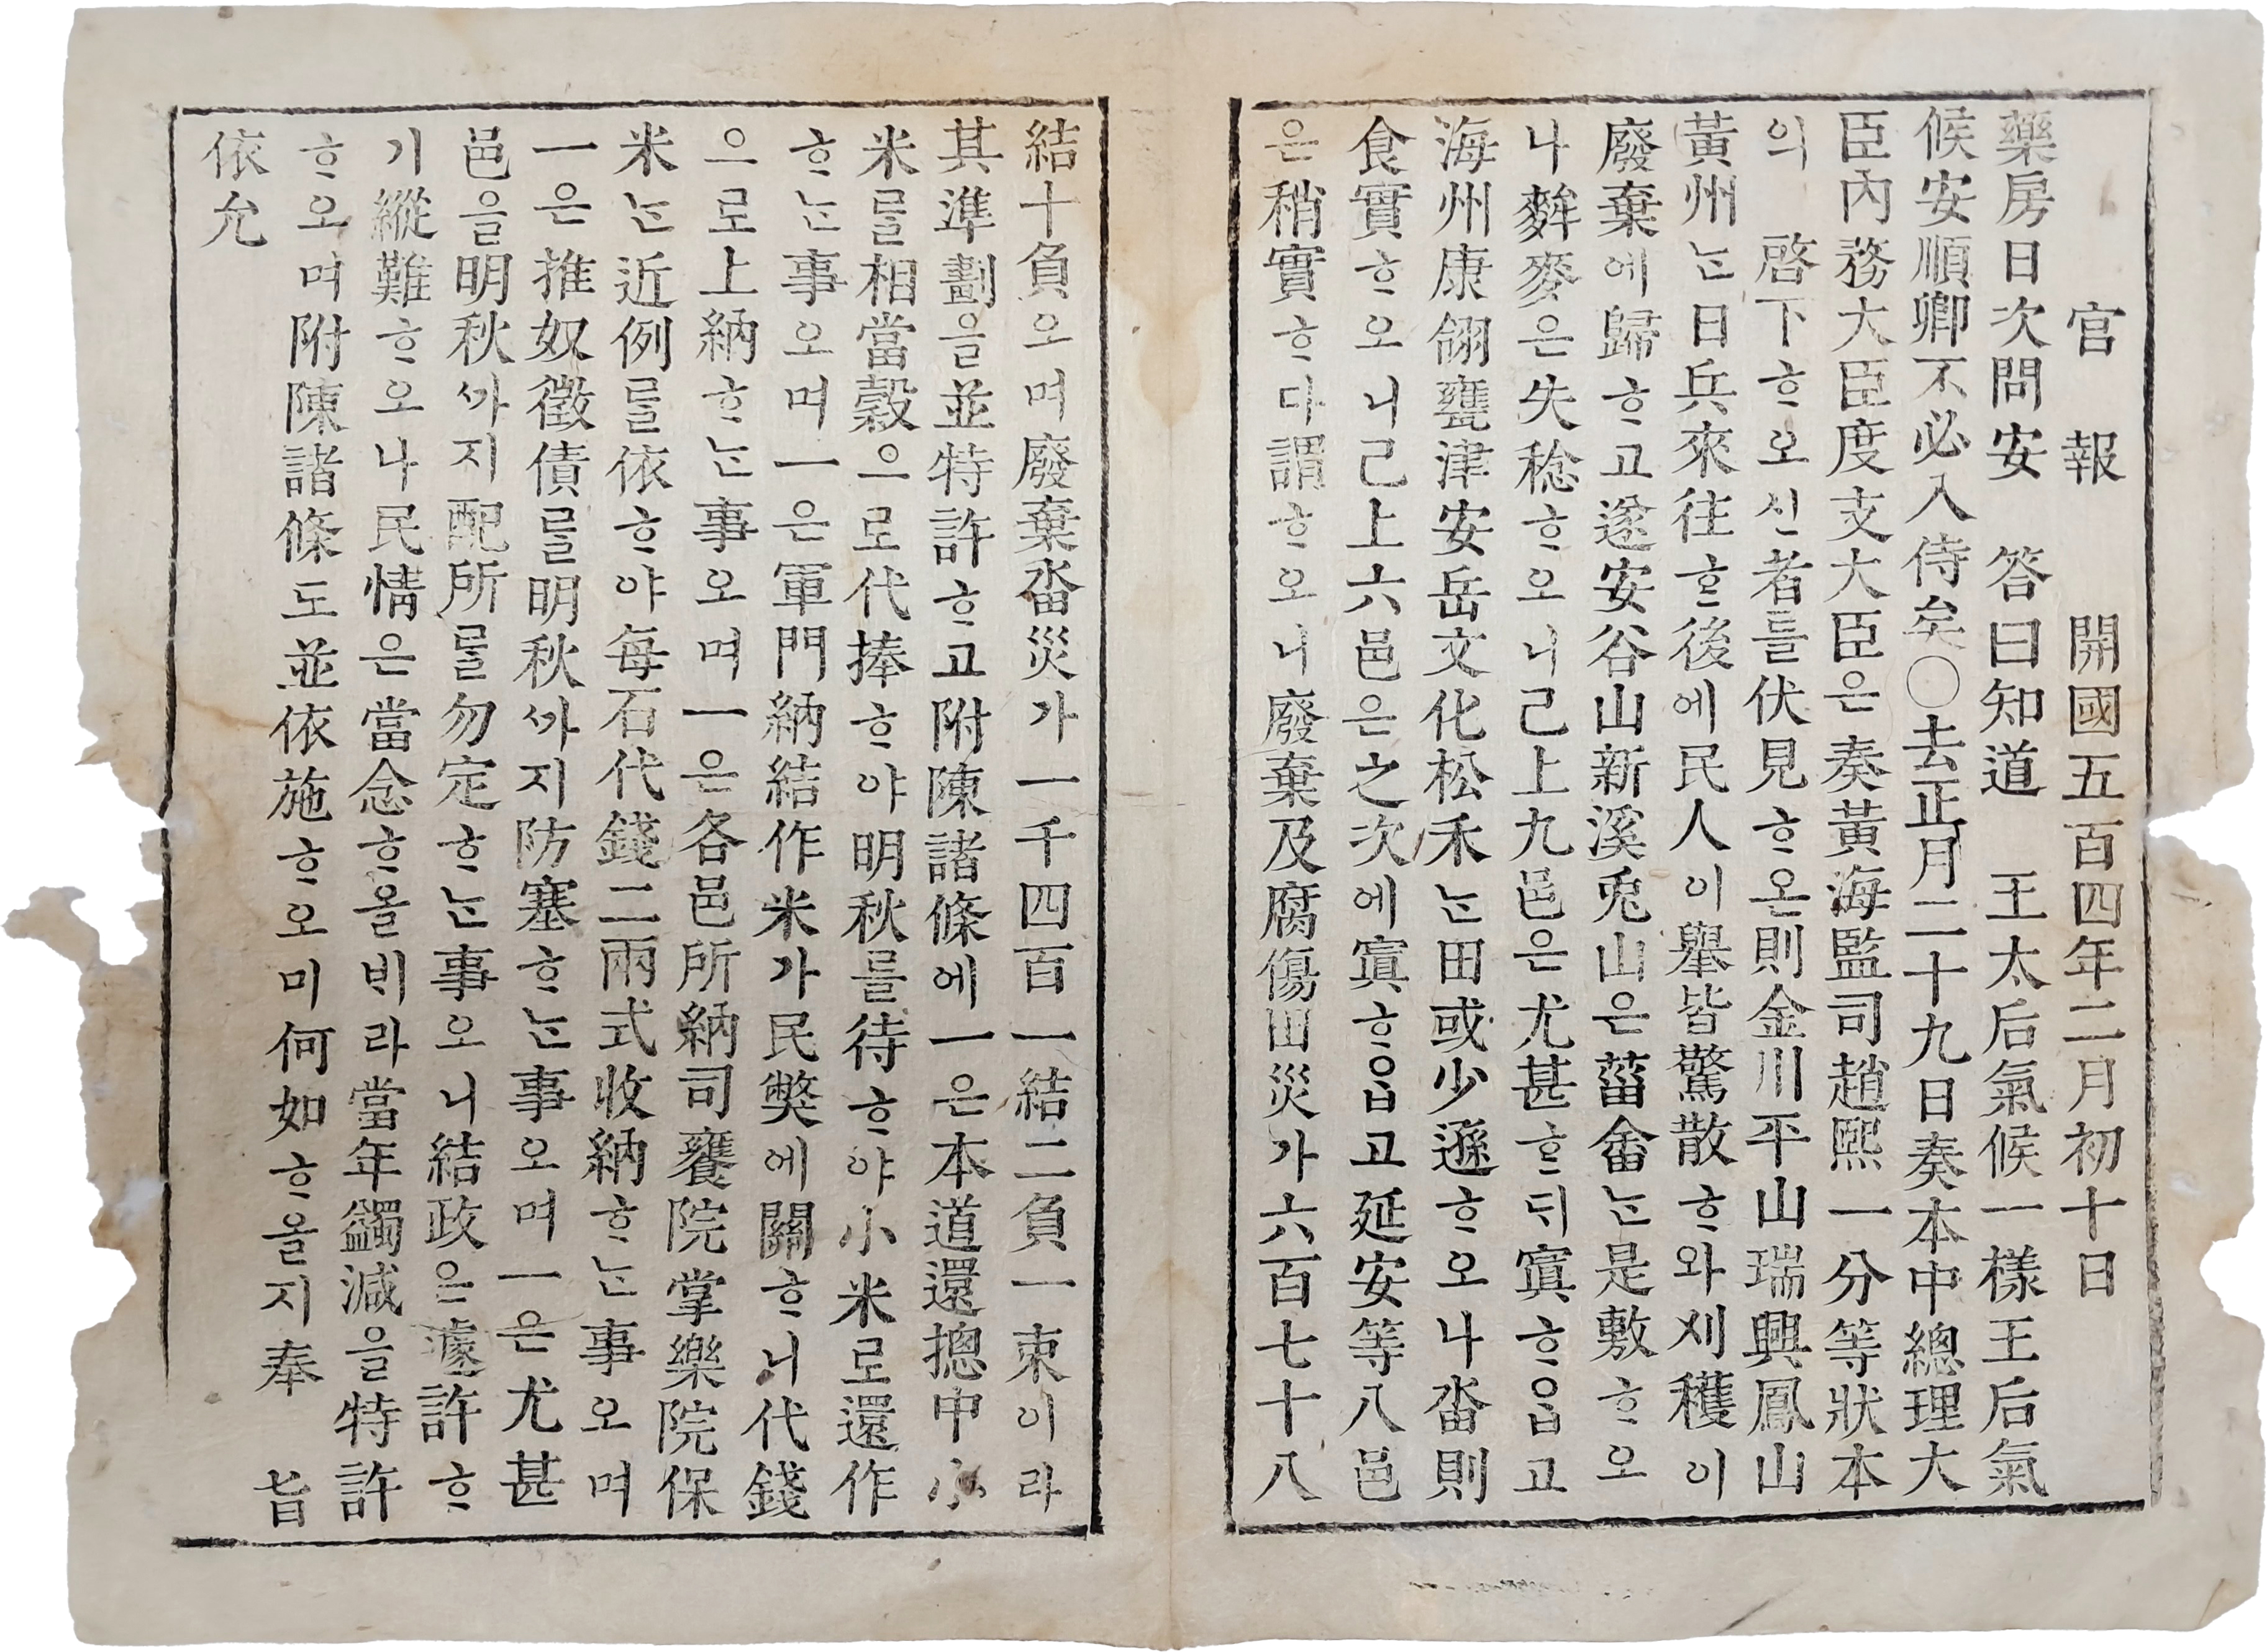 官報 開國五百四年二月初十日
藥房日次問安 答曰知道 王太后氣候一樣王后氣
候安順卿不必入侍矣○去正月二十九日奏本中總理大
臣內務大臣度支大臣은奏黃海監司趙熙一分等狀本
의 啓下ᄒᆞ오신者를伏見ᄒᆞ온則金川平山瑞興鳳山
黃州ᄂᆞᆫ日兵來往ᄒᆞᆫ後에民人이擧皆驚散ᄒᆞ와刈穫이
廢棄에歸ᄒᆞ고遂安谷山新溪兎山은菑畬ᄂᆞᆫ是敷ᄒᆞ오
나麰麥은失稔ᄒᆞ오니已上九邑은尤甚ᄒᆞᆫᄃᆡ寘ᄒᆞᄋᆞᆸ고
海州康翎甕津安岳文化松禾ᄂᆞᆫ田或少遜ᄒᆞ오나畓則
食實ᄒᆞ오니已上六邑은之次에寘ᄒᆞᄋᆞᆸ고延安等八邑
은稍實ᄒᆞ다謂ᄒᆞ오니廢棄及腐傷田災가六百七十八
結十負오며廢棄畓災가一千四百一結二負一束이라
其準劃을並特許ᄒᆞ고附陳諸條에一은本道還摠中小
米를相當穀으로代捧ᄒᆞ야明秋를待ᄒᆞ야小米로還作
ᄒᆞᄂᆞᆫ事오며一은軍門納結作米가民弊에關ᄒᆞ니代錢
으로上納ᄒᆞᄂᆞᆫ事오며一은各邑所納司饔院掌樂院保
米ᄂᆞᆫ近例를依ᄒᆞ야每石代錢二兩式收納ᄒᆞᄂᆞᆫ事오며
一은推奴徵債를明秋ᄭᆞ지防塞ᄒᆞᄂᆞᆫ事오며一은尤甚
邑을明秋ᄭᆞ지配所를勿定ᄒᆞᄂᆞᆫ事오니結政은遽許ᄒᆞ
기縱難ᄒᆞ오나民情은當念ᄒᆞ올ᄇᆡ라當年蠲減을特許
ᄒᆞ오며附陳諸條도並依施ᄒᆞ오미何如ᄒᆞ올지奉 旨
依允